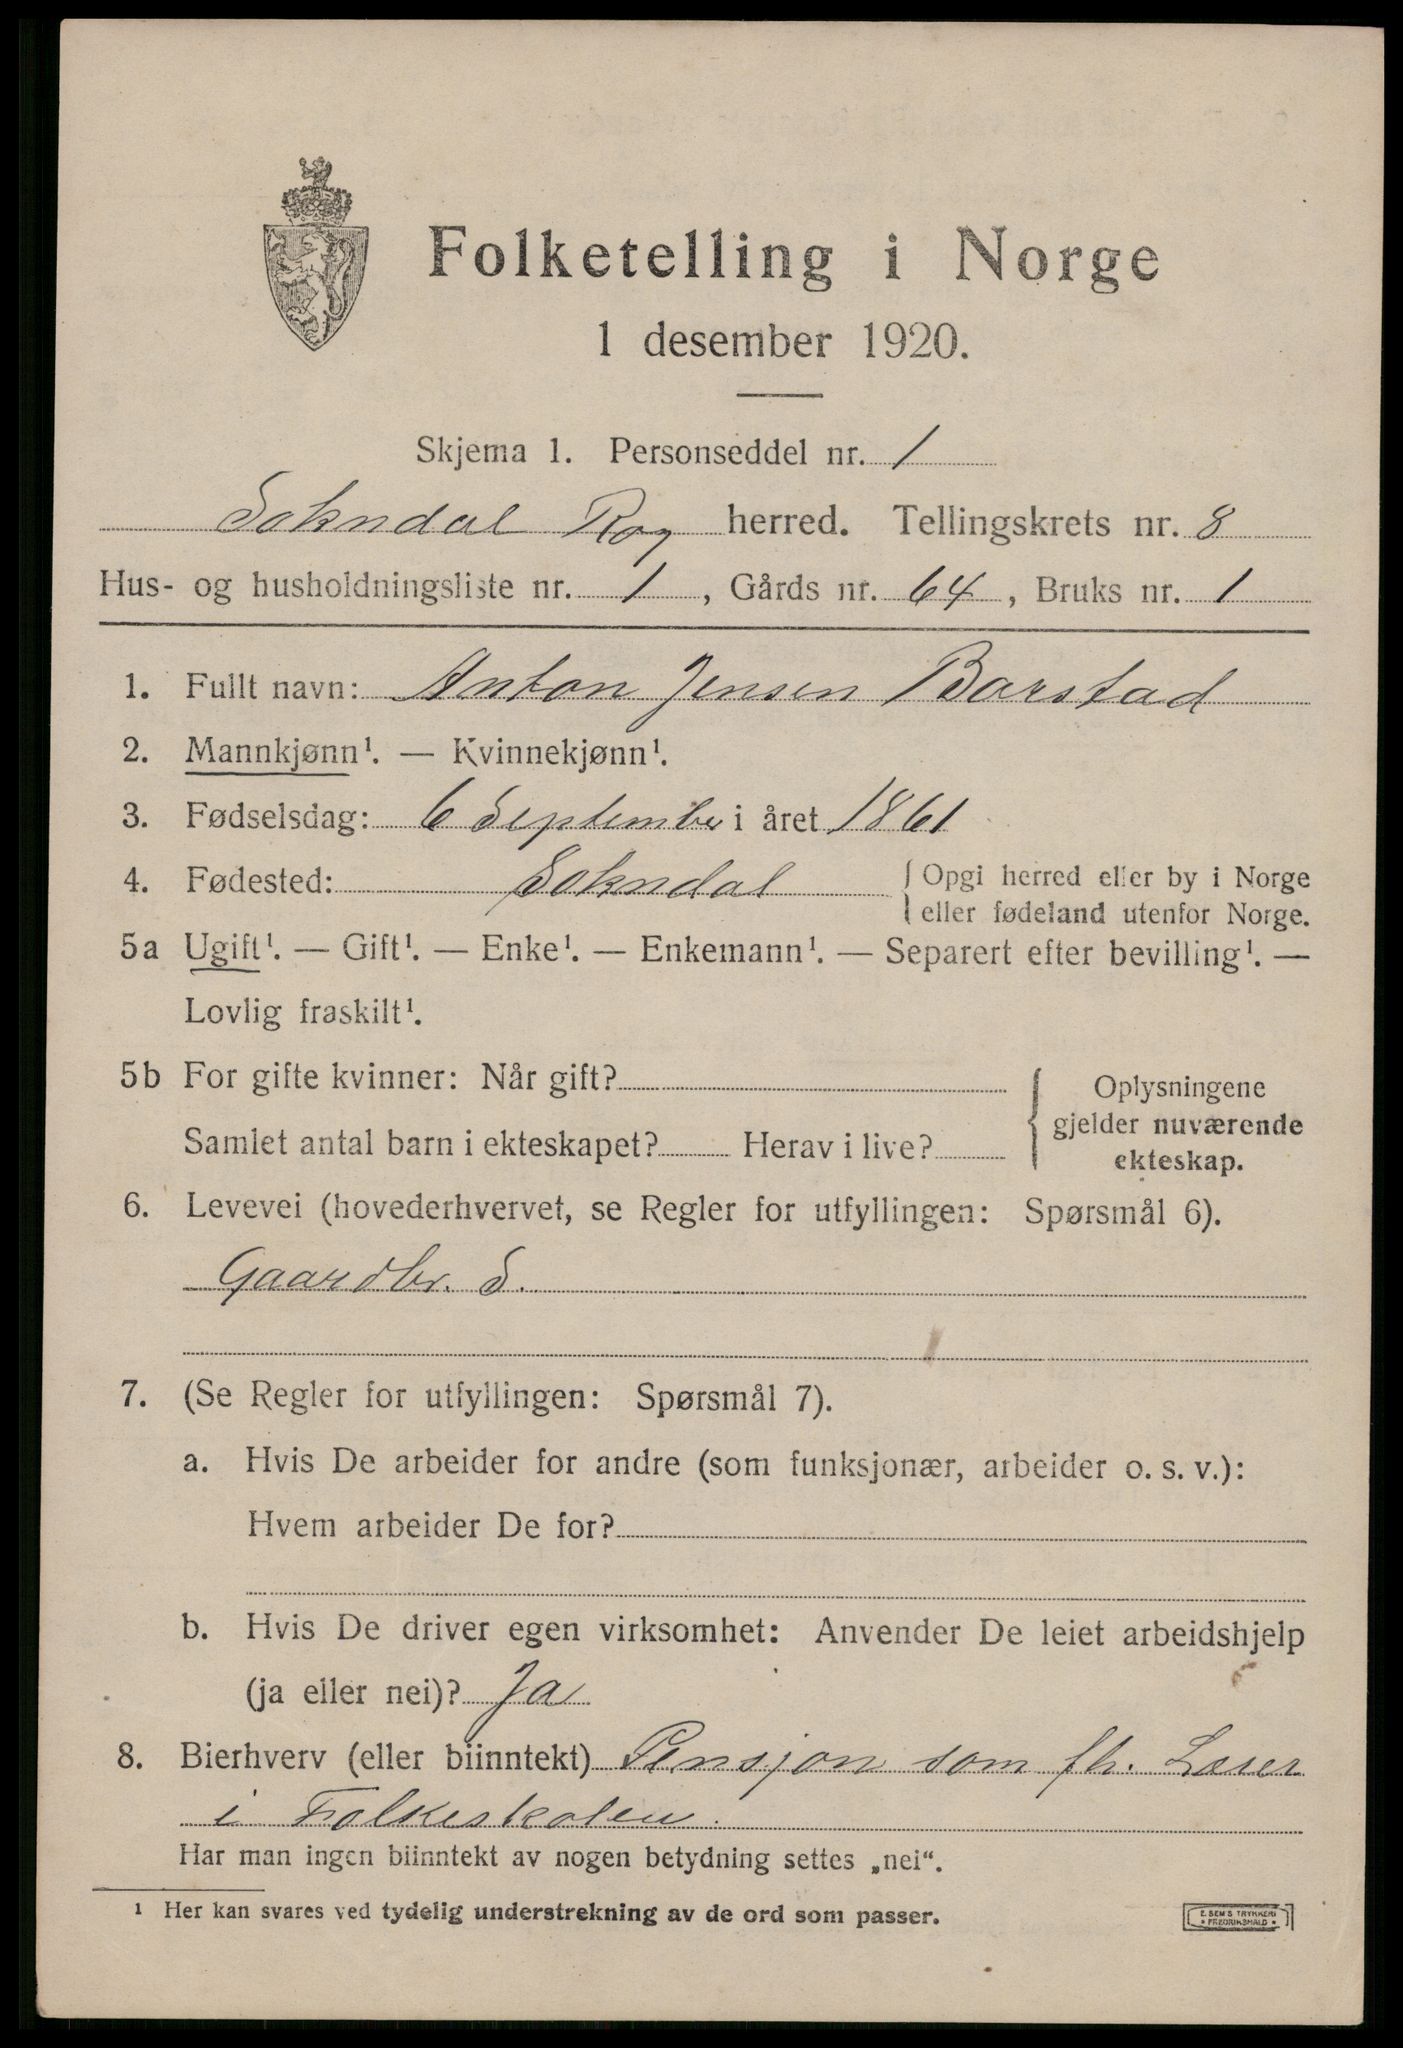 Folketelling i Norge
1 desember 1920.
Skjema 1. Personseddel nr. 1
Sokndal Rog herred. Tellingskrets nr. 8
Hus- og husholdningsliste nr. 1, Gårds nr. 64, Bruks nr. 1
1. Fullt navn: Anton Jensen Barstad
2. Mannkjønn¹. — Kvinnekjønn¹.
3. Fødselsdag: 6 September i året 1861
4. Fødested: Sokndal { Opgi herred eller by i Norge
eller fødeland utenfor Norge.
5a Ugift¹. — Gift¹. — Enke¹. — Enkemann¹. — Separert efter bevilling¹. —
Lovlig fraskilt¹.
5b For gifte kvinner: Når gift?
Samlet antal barn i ekteskapet? Herav i live?
{ Oplysningene
gjelder nuværende
ekteskap.
6. Levevei (hovederhvervet, se Regler for utfyllingen: Spørsmål 6).
Gaardbr. S.
7. (Se Regler for utfyllingen: Spørsmål 7).
a. Hvis De arbeider for andre (som funksjonær, arbeider o. s. v.):
Hvem arbeider De for?
b. Hvis De driver egen virksomhet: Anvender De leiet arbeidshjelp
(ja eller nei)? Ja
8. Bierhverv (eller biinntekt) Pensjon som fh. Lærer
i Folkeskolen.
Har man ingen biinntekt av nogen betydning settes „nei“.
¹ Her kan svares ved tydelig understrekning av de ord som passer.
E. SEM'S TRYKKERI
* FREDRIKSHALD *